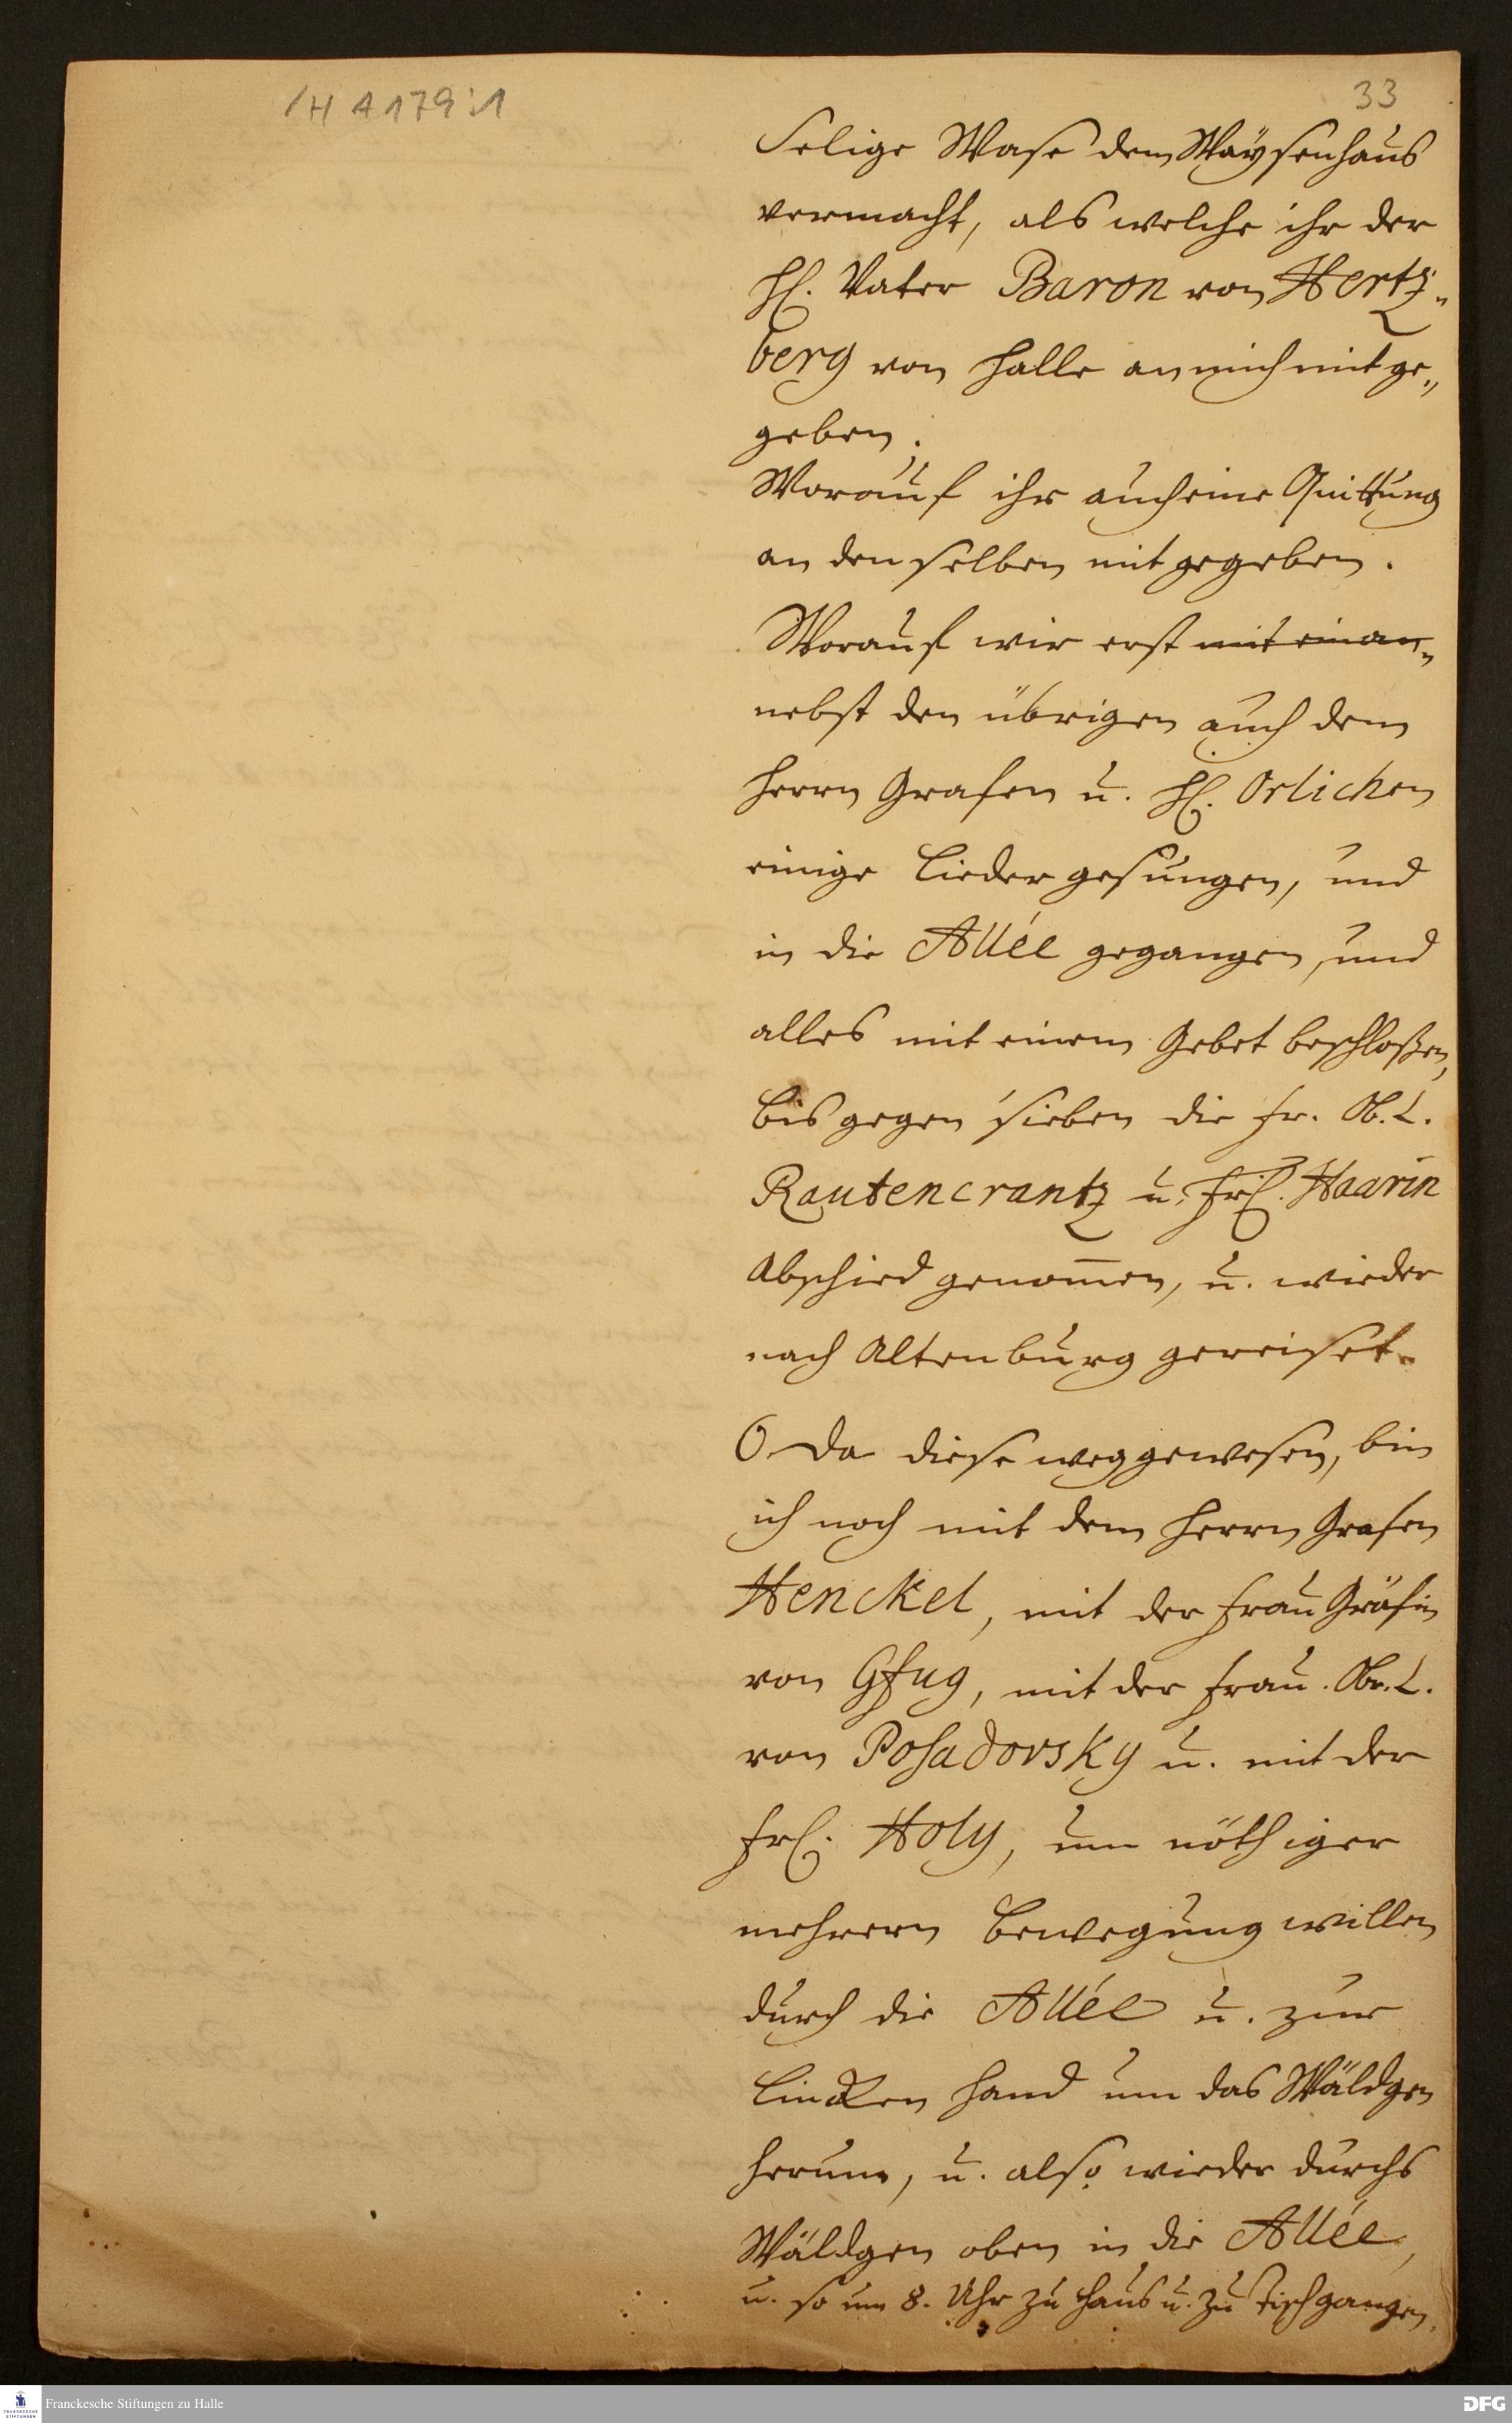 /H A 179:1
33
Selige Wase dem Waÿsenhaus
vermacht, als welche ihr der
H. Vater Baron von Hertz-
berg von Halle an mich mit ge-
geben.
Worauf ihr auch eine Quittung
an denselben mit gegeben.
Worauf wir erst mit einan-
nebst den übrigen auch dem
Herrn Grafen u. H. Orlichen
einige Lieder gesungen, und
in die Allée gegangen, und
alles mit einem Gebet beschloßen,
bis gegen sieben die Fr. Ob. L.
Rautencrantz u. Frl. Haarin
Abschied genom̅en, u. wieder
nach Altenburg gereiset.
O da diese weggewesen, bin
ich noch mit dem Herrn Grafen
Henckel, mit der Frau Gräfin
von Gfug, mit der Frau Obr. L.
von Posadovsky u. mit der
Frl. Holy, um nöthiger
mehrern Bewegung willen
durch die Allée u. zur
lincken Hand um das Wäldgen
herum, u. also wieder durchs
Wäldgen oben in die Allée,
u. so um 8. Uhr zu Haus u. zu Tisch gangen.
Franckesche Stiftungen zu Halle
DFG